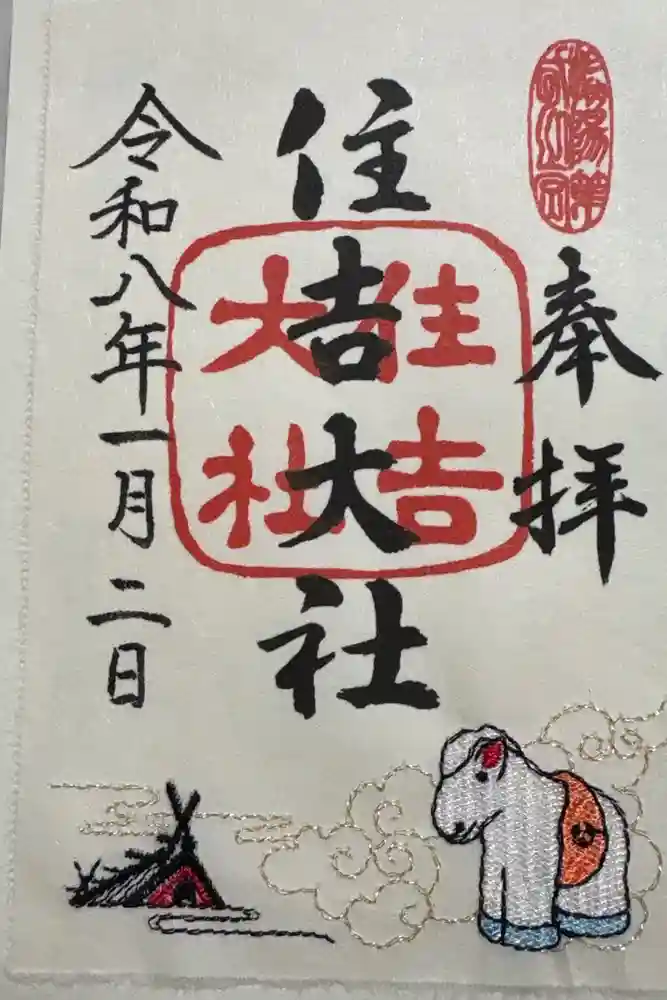 奉拝
住吉大社
住吉
大社
令和八年一月二日